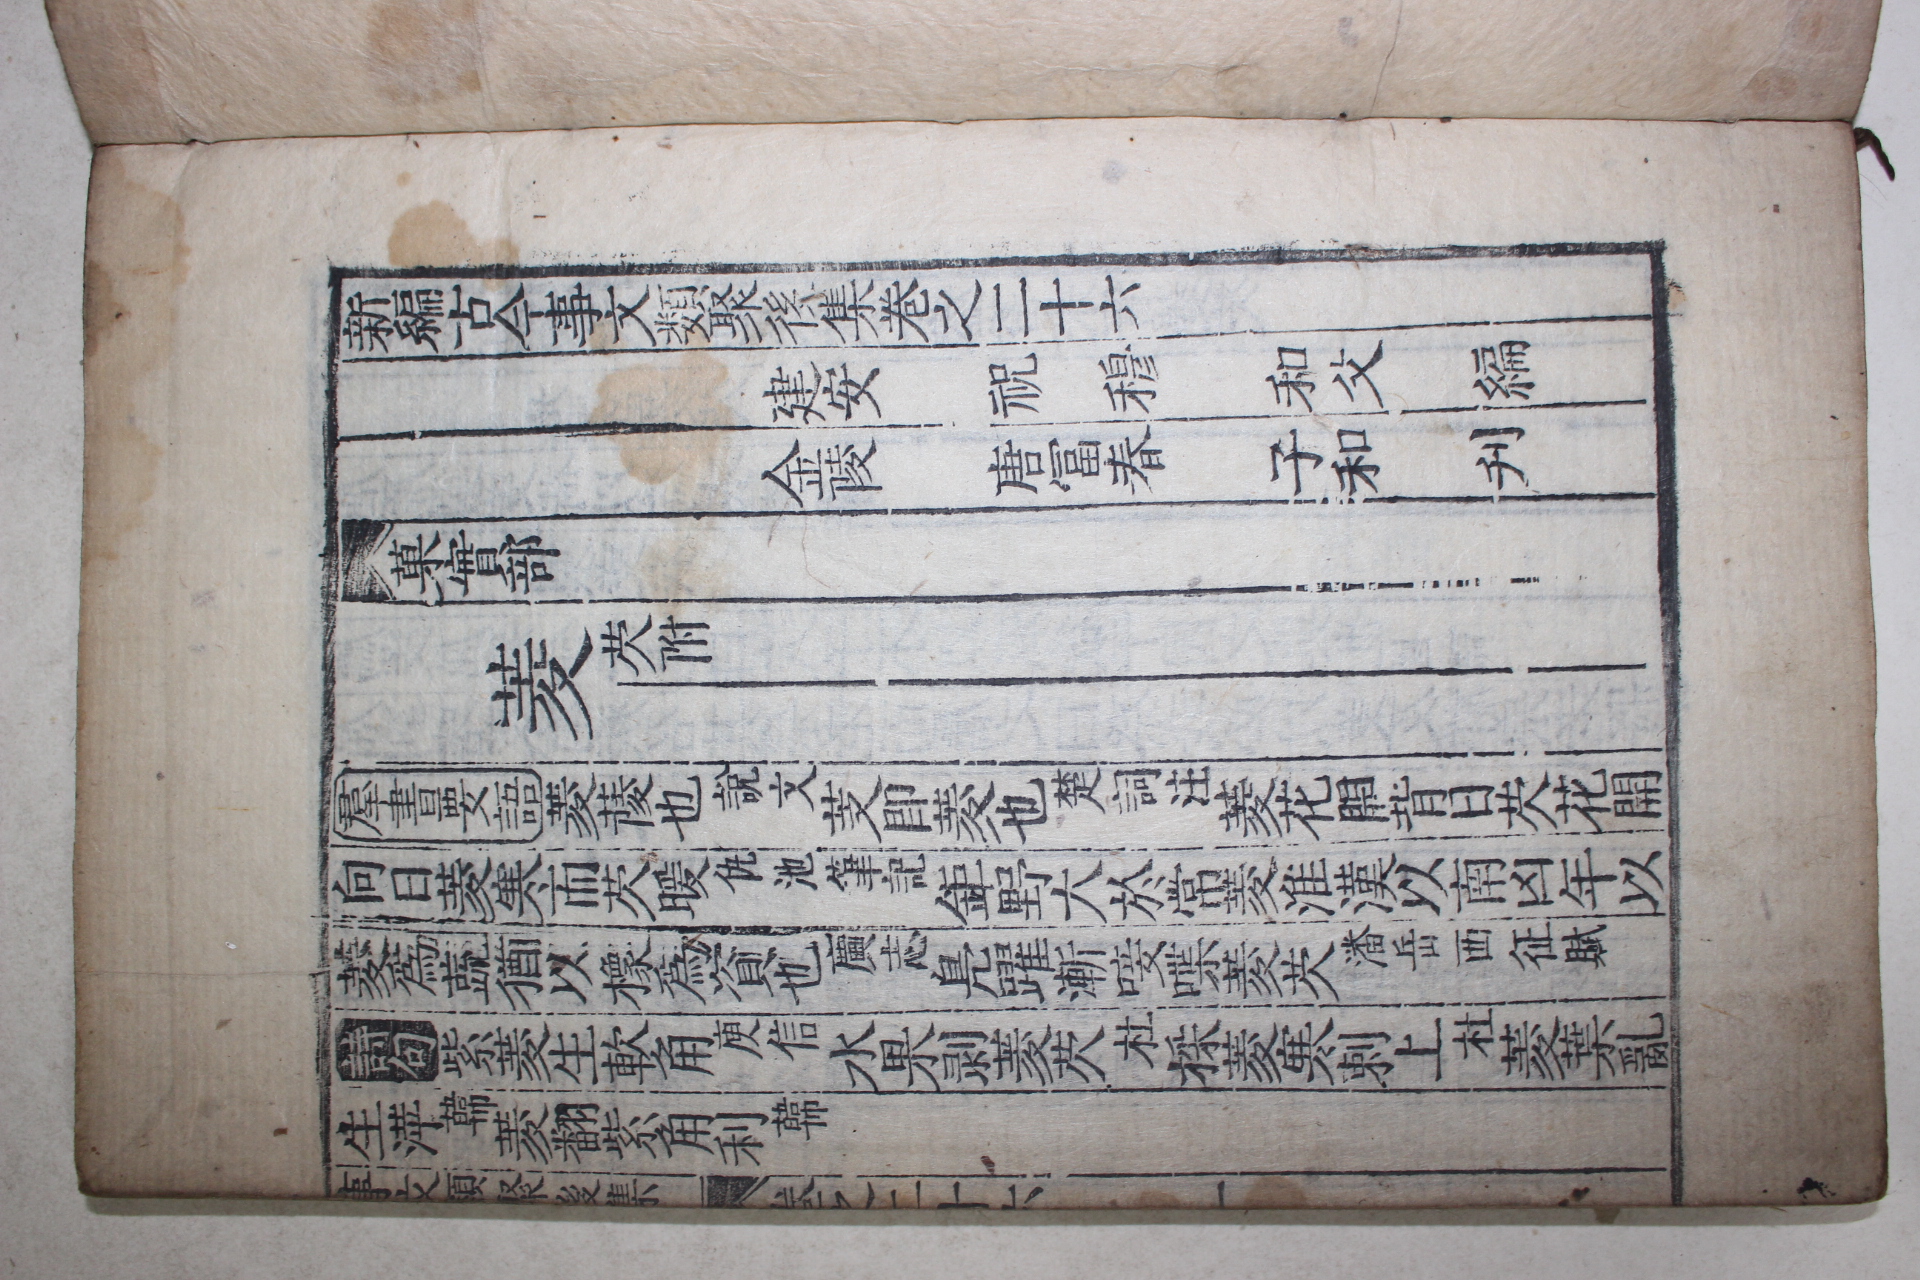 新編古今事文類聚後集卷之二十六
建安　祝　穆　和父　編
金陵　唐冨春　子和　刋
菓實部
菱　芡附
羣書要語 菱薐也 說文 芰即菱也 楚詞注 菱花開背日芡花開
向日菱寒而芡暖 仇池筆記 鉅野大於常菱淮漢以南凶年以
菱為蔬猶以橡為資也 廣志 鳧躍漸唼喋菱芡 潘岳西征賦
詩句 紫菱生軟角 庾信 水果剥菱芡 杜 採菱寒刺上 杜 菱葉亂
生泙 韓 菱翻紫角利 韓
事文類聚後集 卷之二十六 一